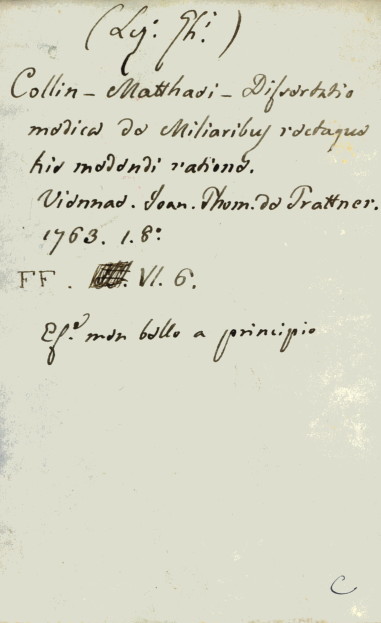 (Leg: Ghi.)
Collin – Matthaei – Dissertatio
medica de Miliaribus rectaque
his medendi ratione.
Viennae. Joan. Thom. de Trattner.
1763. 1. 8°.
FF. VI. 6.
Es.e men bello a principio
C